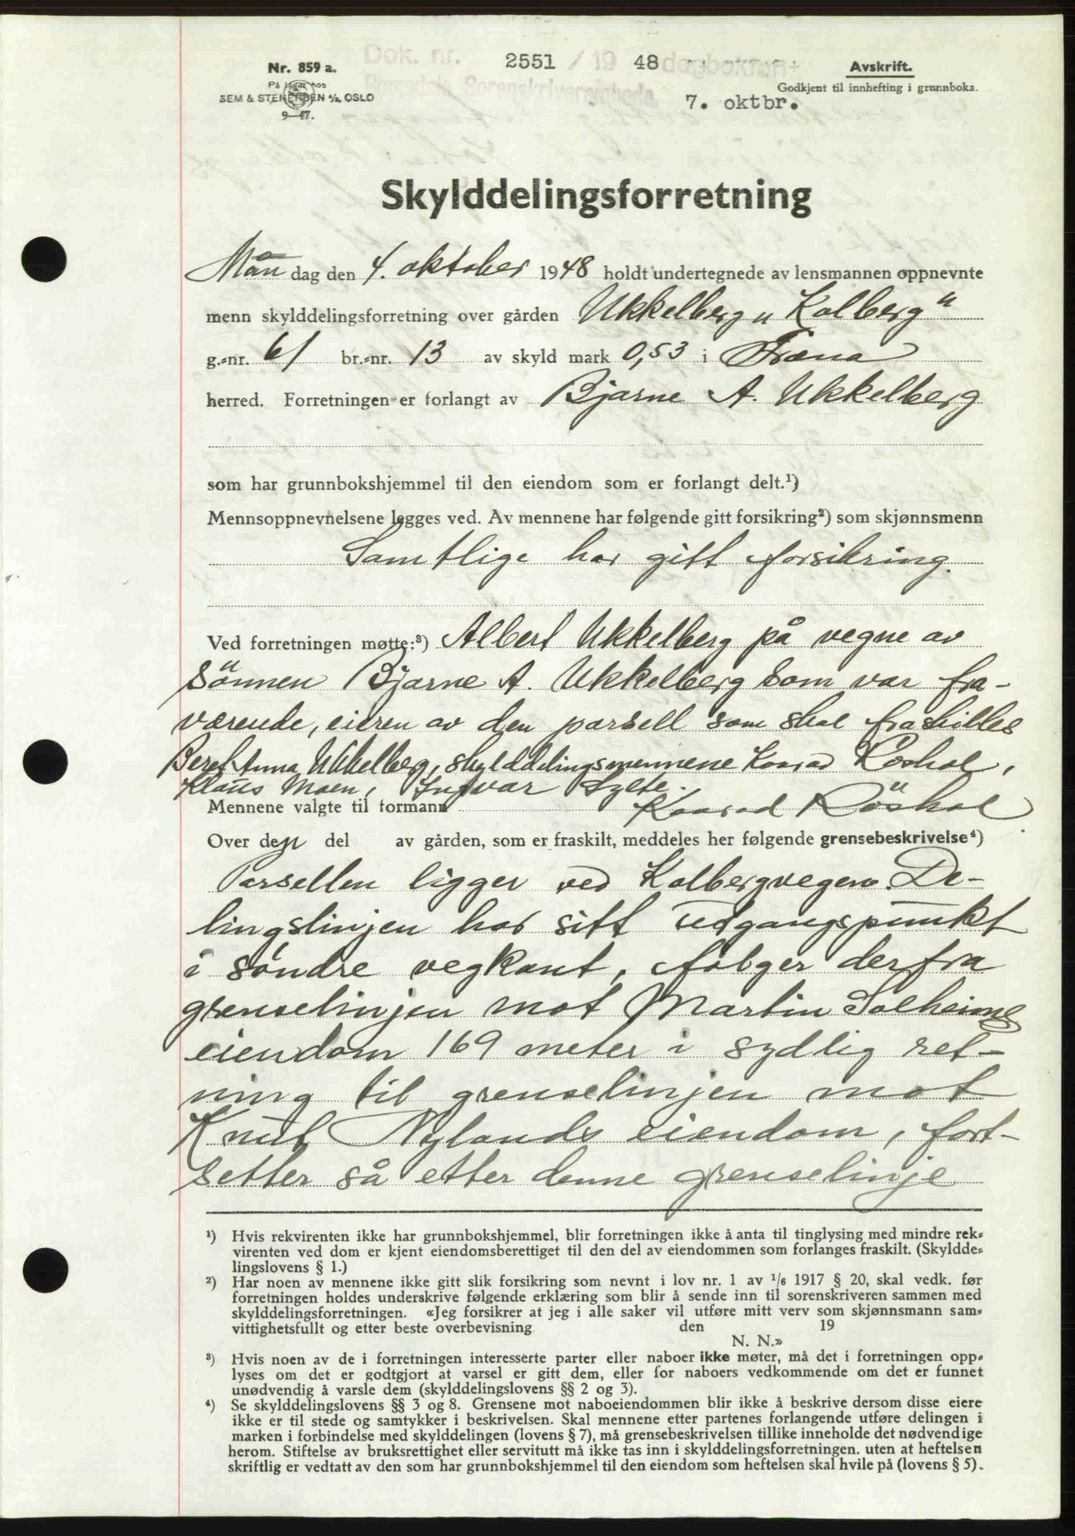 Nr. 859 a.
På lager hos
SEM & STENERSEN A/S, OSLO
9—47.
Dok. nr. 2551 / 19 48 dagbokført
Romsdal Sorenskriverembede
7. oktbr.
Avskrift.
Godkjent til innhefting i grunnboka.
Skylddelingsforretning
Mån dag den 4. oktober 1948 holdt undertegnede av lensmannen oppnevnte
menn skylddelingsforretning over gården Ukkelberg „Kolberg“
g.-nr. 61 br.-nr. 13 av skyld mark 0,53 i Fræna
herred. Forretningen er forlangt av Bjarne A. Ukkelberg
som har grunnbokshjemmel til den eiendom som er forlangt delt.¹)
Mennsoppnevnelsene legges ved. Av mennene har følgende gitt forsikring²) som skjønnsmenn
Samtlige har gitt forsikring.
Ved forretningen møtte:³) Albert Ukkelberg på vegne av
sönnen Bjarne A. Ukkelberg som var fra-
værende, eieren av den parsell som skal fraskilles
Beret Anna Ukkelberg, skylddelingsmennene Konrad Röshol,
Klaus Moen, Ingvar Sylte.
Mennene valgte til formann Konrad Röshol
Over den del av gården, som er fraskilt, meddeles her følgende grensebeskrivelse⁴)
Parsellen ligger ved Kolbergvegen. De-
lingslinjen har sitt udgangspunkt
i søndre vegkant, følger derfra
grenselinjen mot Martin Solheims
eiendom 169 meter i sydlig ret-
ning til grenselinjen mot
Knut Nylands eiendom, fort-
setter så etter denne grenselinje
¹) Hvis rekvirenten ikke har grunnbokshjemmel, blir forretningen ikke å anta til tinglysing med mindre rek-
virenten ved dom er kjent eiendomsberettiget til den del av eiendommen som forlanges fraskilt. (Skyldde-
lingslovens § 1.)
²) Har noen av mennene ikke gitt slik forsikring som nevnt i lov nr. 1 av 1/6 1917 § 20, skal vedk. før
forretningen holdes underskrive følgende erklæring som blir å sende inn til sorenskriveren sammen med
skylddelingsforretningen. «Jeg forsikrer at jeg i alle saker vil utføre mitt verv som skjønnsmann sam-
vittighetsfullt og etter beste overbevisning den 19
N. N.»
³) Hvis noen av de i forretningen interesserte parter eller naboer ikke møter, må det i forretningen opp-
lyses om det er godtgjort at varsel er gitt dem, eller for naboers vedkommende om det er funnet
unødvendig å varsle dem (skylddelingslovens §§ 2 og 3).
⁴) Se skylddelingslovens §§ 3 og 8. Grensene mot naboeiendommen blir ikke å beskrive dersom disse eiere
ikke er til stede og samtykker i beskrivelsen. Skal mennene etter partenes forlangende utføre delingen i
marken i forbindelse med skylddelingen (lovens § 7), må grensebeskrivelsen tillike inneholde det nødvendige
herom. Stiftelse av bruksrettighet eller servitutt må ikke tas inn i skylddelingsforretningen, uten at heftelsen
skriftlig er vedtatt av den som har grunnbokshjemmel til den eiendom som heftelsen skal hvile på (lovens § 5).